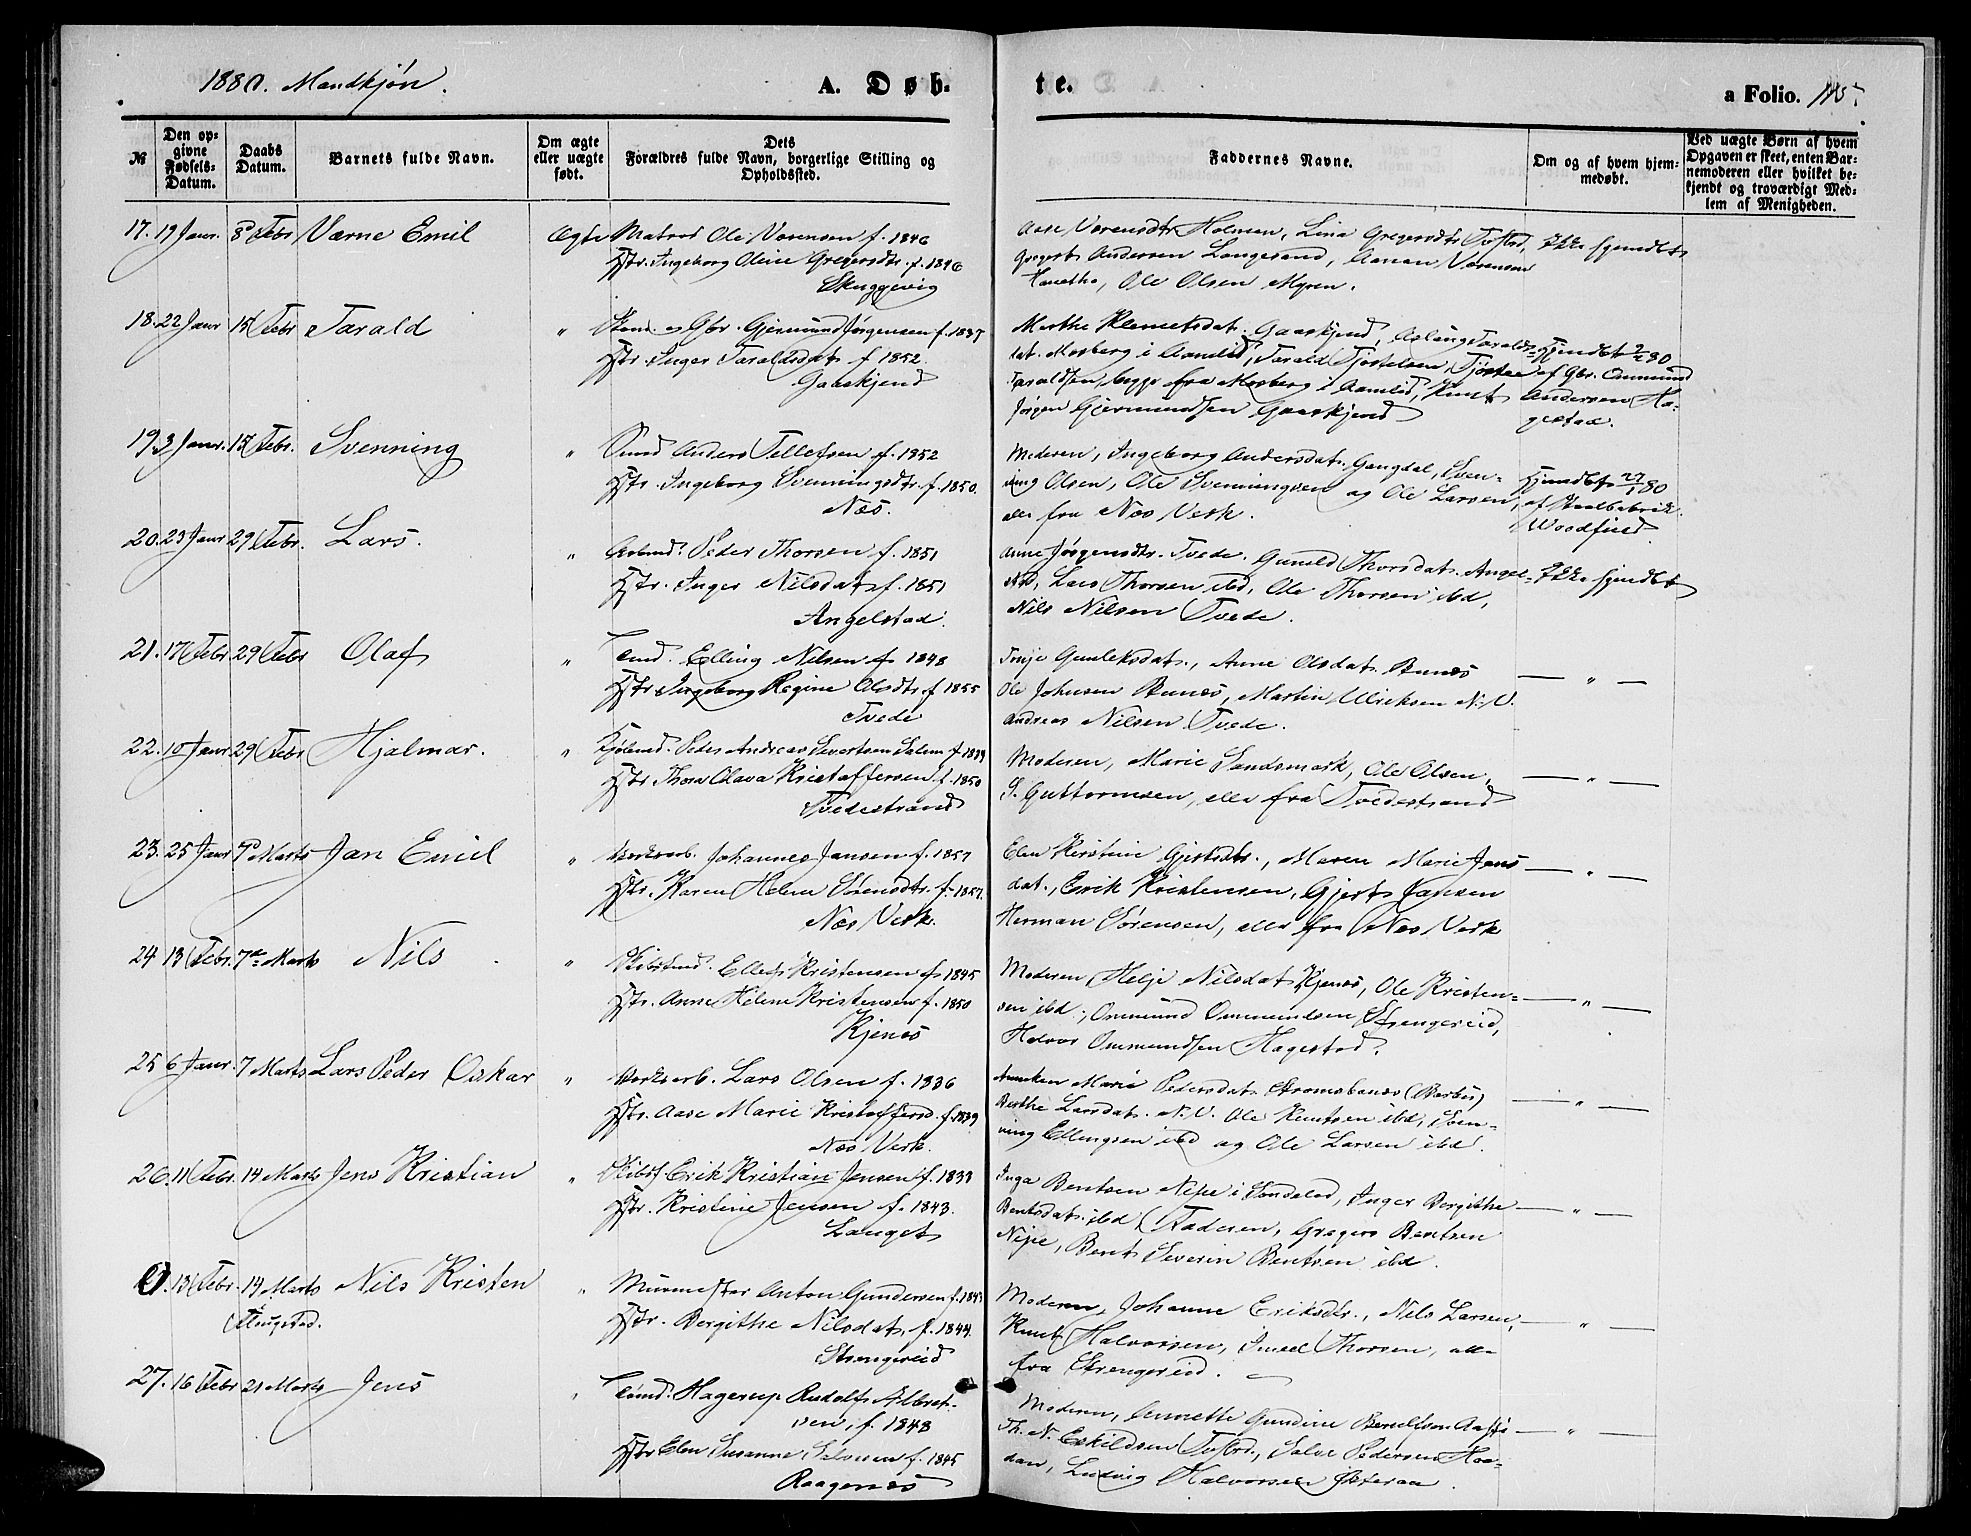 1880. Mandkjøn.
A. Døb-
te.
a Folio. 115.
№
Den op-
givne
Fødsels-
Datum.
Daabs
Datum.
Barnets fulde Navn.
Om ægte
eller uægte
født.
Dets
Forældres fulde Navn, borgerlige Stilling og
Opholdssted.
Faddernes Navne.
Om og af hvem hjem-
medøbt.
Ved uægte Børn af hvem
Opgaven er skeet, enten Bar-
nemoderen eller hvilket be-
kjendt og troværdigt Med-
lem af Menigheden.
17. 19 Janr. 8 Febr Værne Emil Ægte Matros Ole Vorensen f. 1846
Hstr. Ingeborg Olene Gregersdtr. f. 1846
Skuggevig
Aase Vorensdtr. Holmen, Lina Gregersdtr.
Gregert Andersen Langesand, Aanon Vorensen
Ole Olsen Myren.
Ikke hjemdbt
18. 22 Janr 15 Febr Tarald " Gbr. Gjermund Jørgensen f. 1835
Hstr. Inger Taraldsdat. f. 1852.
Gaaskjend
Marthe Klemetsdat. Gaaskjend, Aslaug Taralds-
dat. Mosberg i Aamlid, Tarald Tjostelsen,
Taraldsen, begge fra Mosberg i Aamlid, Knut
Jørgen Gjermundsen Gaaskjend
Hjemdbt 2/2 80
af Gbr. Ommund
Andersen Ha-
gestad.
19. 3 Janr. 15 Febr. Svenning " Smed Anders Tellefsen f. 1852
Hstr. Ingeborg Svenningsdtr. f. 1850.
Næs.
Moderen, Ingeborg Andersdat. Gangdal, Sven-
ning Olsen, Ole Svenningsen og Ole Larsen,
alle fra Næs Verk.
Hjemdbt 27/1 80
af Staalfabrik.
Woodfield
20. 23 Janr 29 Febr. Lars. " Arbmd. Peder Thorsen f. 1851
Hstr. Inger Nilsdat. f. 1851
Angelstad.
Anne Jørgensdtr. Tvede. Gunild Thorsdat. Angel-
stad, Lars Thorsen ibd, Ole Thorsen ibd,
Nils Nilsen Tvede.
Ikke hjemdbt
21. 17 Febr 29 Febr Olaf " Tmd. Elling Nilsen f. 1848
Hstr. Ingeborg Regine Olsdtr. f. 1855
Tvede
Gunleksdat., Anne Olsdat. Bunæs
Ole Johnsen Bunæs, Martin Ulriksen N. V.
Andreas Nilsen Tvede.
— " —
22. 10 Janr 29 Febr Hjalmar. " Peder Andreas Severtsen f. 1839
Hstr Thora Olava Kristoffersen f. 1850
Tvedestrand
Moderen, Marie Sandsmark, Ole Olsen,
S. Guttormsen, alle fra Tvedestrand
— " —
23. 25 Janr 7 Marts Jan Emil " Verksarb. Johannes Jansen f. 1857
Hstr. Karen Helene Sørensdtr. f. 1857.
Næs Verk.
Elen Kirstine Gjertsdtr., Maren Marie Jens
dat., Erik Kristensen, Gjert Jansen
Herman Sørensen, alle fra Næs Verk
— " —
24 13 Febr. 7de Marts Nils " Skibstmd. Ellef Kristensen f. 1845
Hstr. Anne Helene Kristensen f. 1850
Kjenæs
Moderen, Helje Nilsdat. Kjenæs, Ole Kristen-
sen ibd., Ommund Ommundsen Strengereid,
Halvor Ommundsen Hagestad.
— " —
25 6 Janr. 7 Marts Lars Peder Oskar " Verksarb. Lars Olsen f. 1836
Hstr. Aase Marie Kristoffersd. f. 1839
Næs Verk.
Anneken Marie Pedersdat. Strømsbunæs (Barbu)
Berthe Larsdat. N. V. Ole Knutsen ibd, Sven-
ning Ellingsen ibd og Ole Larsen ibd.
— " —
26. 11 Febr. 14 Marts Jens Kristian " Skibsf. Erik Kristian Jensen f. 1838
Hstr. Kristine Jensen f. 1843.
Langet
Inga Bentsen Nipe i Søndeled, Inger Bergithe
Bentsdat. ibd, Faderen, Gregers Bentsen
Nipe, Bent Severin Bentsen ibd.
— " —
0. 13 Febr. 14 Marts Nils Kristen " Murmester Anton Gundersen f. 1843
Flaugstad.
Hstr. Bergithe Nilsdat. f. 1844.
Strengereid
Moderen, Johanne Eriksdtr., Nils Larsen,
Knut Halvorsen, Thorsen, alle
fra Strengereid.
— " —
27. 16 Febr 21 Marts Jens " Tømd. Hagerup Rudolf Albret-
sen, f. 1848
Hstr Elen Susanne Salvesen f. 1845
Raagenæs
Moderen, Annette Gundine
Th. N. Eskildsen, Salve Pedersen Haa-
dan, Ludvig Halvorsen
— " —